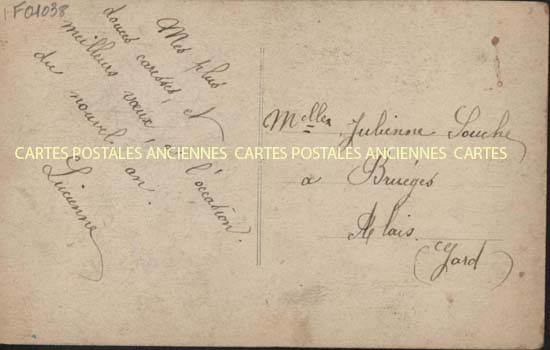 F01038
Mes plus
douces caresses, et
meilleurs vœux à l'occasion
du nouvel an.
Lucienne
Melle Julienne Souche
à Bruèges
Alais
(Gard)
CARTES POSTALES ANCIENNES CARTES POSTALES ANCIENNES CARTES